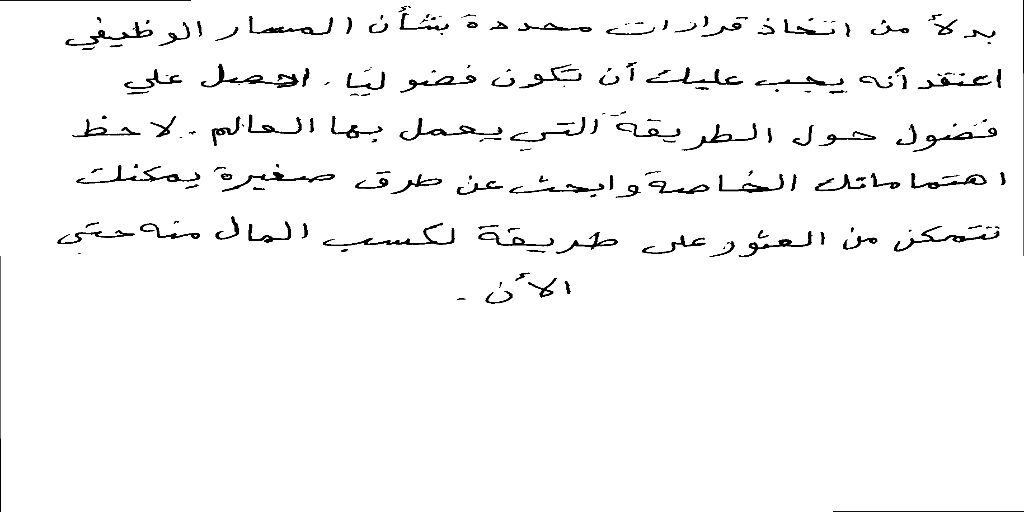 بدلأ من اتخاذ قرارات محددة بشأن المسار الوظيفي
اعتقد أنه يجب عليك أن تكون فضوليًا. احصل علي
فضول حول الطريقة التي يعمل بها العالم. لاحظ
اهتماماتك الخاصة وابحث عن طرق صغيرة يمكنك
تتمكن من العثور على طريقة لكسب المال منه حتى
الأن.